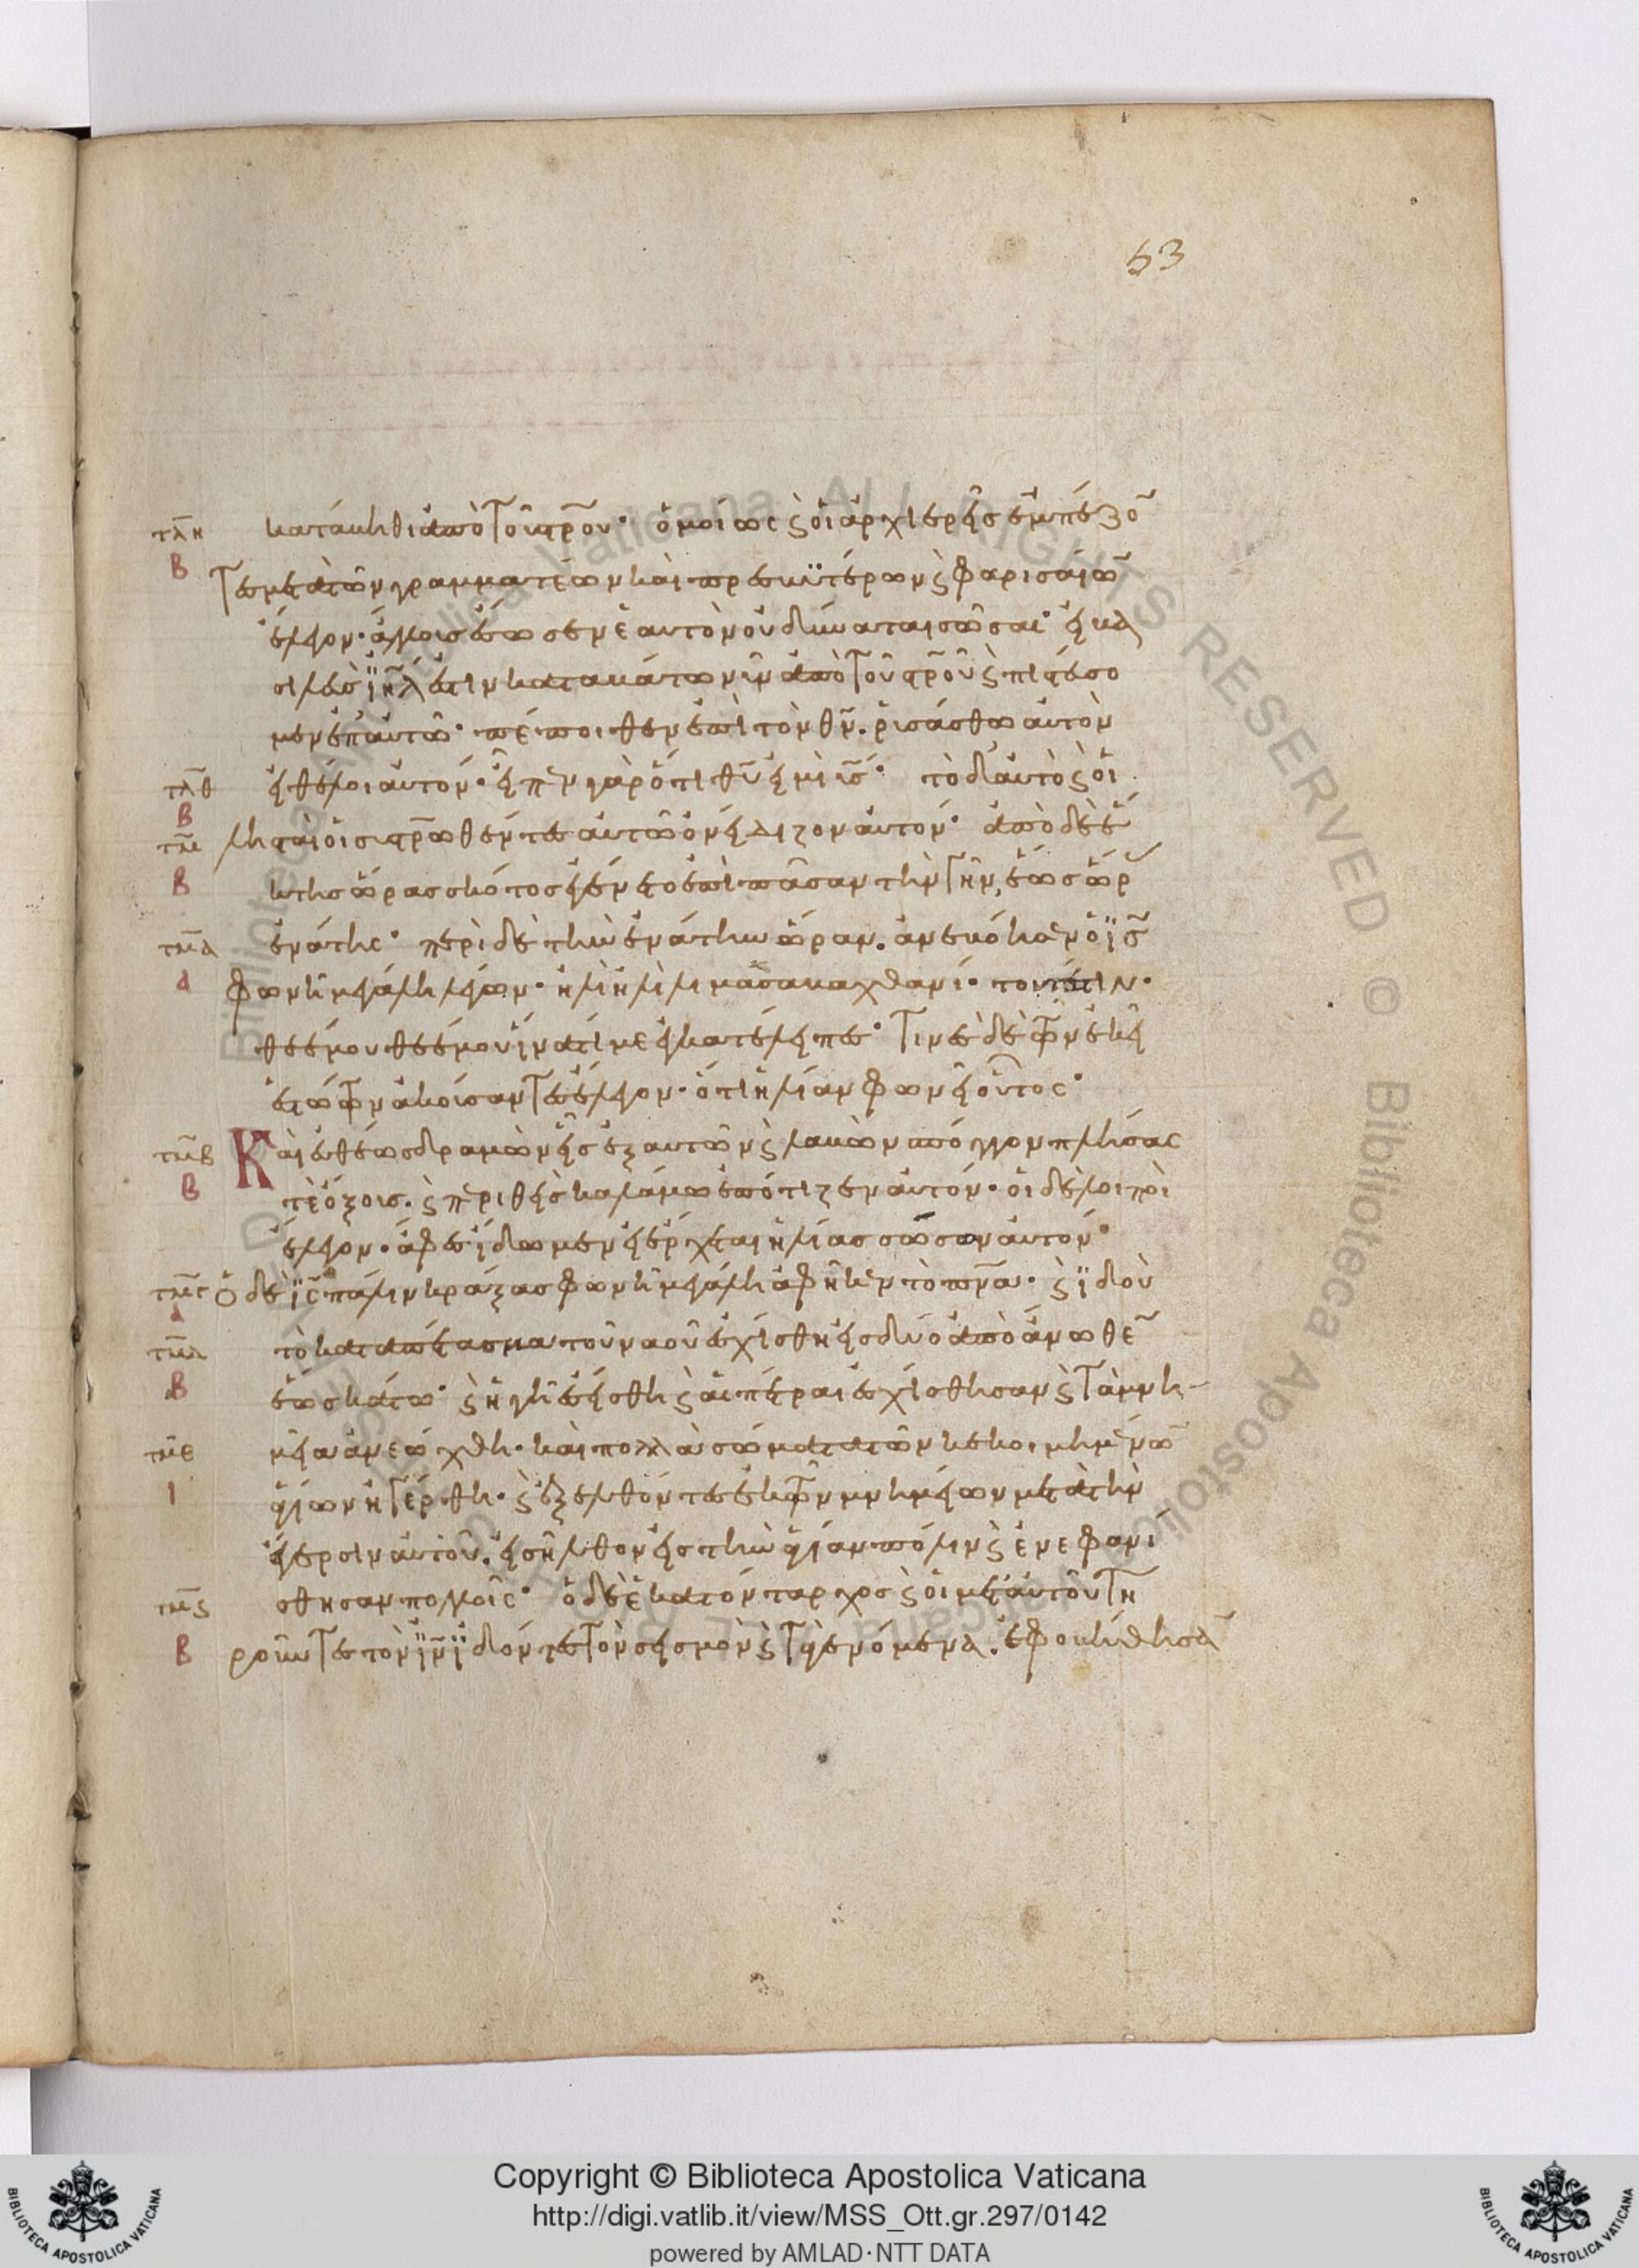 53
τλη κατάβηθι ἀπὸ τοῦ στ̅ρου· ὁμοίως ϗ οἱ ἀρχιερεῖς ἐμπέζο̅
β τες μετὰ τῶν γραμματέων καὶ πρεσβϋτέρων ϗ φαρισαίω̅
ἔλεγον· ἄλλους ἔσωσεν ἑαυτὸν οὐ δύναται σῶσαι· εἰ βα
σιλεὺς ϊη̅λ ἐστιν καταβάτω νῦν ἀπὸ τοῦ στ̅ροῦ ϗ πιστεύσο
μεν ἐπ αὐτῶ· πέποιθεν ἐπὶ τὸν θ̅ν. ῥυσάσθω αὐτὸν
τλθ εἰ θέλει αὐτόν· εἶπεν γὰρ ὅτι θ̅υ εἰμὶ υ̅ς· τὸ δ αὐτὸ ϗ οἱ
β
τμ λησταὶ οἱ συστ̅ρωθέντες αὐτῶ ὀνείδιζον αὐτόν· ἀπὸ δὲ ἕ
β κτης ὥρας σκότος ἐγένετο ἐπὶ πᾶσαν τὴν γῆν, ἕως ὥρ
τμα ἐνάτης· περὶ δὲ τὴν ἐνάτην ὥραν. ἀνεβόησεν ὁ ϊ̅ς
α φωνῆ μεγάλη λέγων· ηλὶ ηλὶ λιμᾶ σαβαχθανί· τουτέστιν·
θεέ μου θεέ μου ἵνα τί με ἐγκατέλειπες· τινὲς δὲ τῶν ἐκεῖ
ἑστώτων ἀκούσαντες ἔλεγον· ὅτι ηλίαν φωνεῖ οὗτος·
τμβ Καὶ εὐθέως δραμὼν εἷς ἐξ αὐτῶν ϗ λαβὼν σπόγγον πλήσας
β τε ὄξους. ϗ περιθεὶς καλάμω ἐπότιζεν αὐτόν· οἱ δὲ λοιποὶ
ἔλεγον· ἄφες ἴδωμεν εἰ ἔρχεται ηλίας σώσων αὐτόν·
τμγ ὁ δὲ ϊ̅ς πάλιν κράξας φωνῆ μεγάλη ἀφῆκεν τὸ πν̅α· ϗ ϊδοὺ
α
τμδ τὸ καταπέτασμα τοῦ ναοῦ ἐσχίσθη εἰς δύο ἀπὸ ἄνωθε̅
β ἕως κάτω· ϗ ἡ γῆ ἐσείσθη ϗ αἱ πέτραι ἐσχίσθησαν ϗ τὰ μνη-
τμε μεῖα ἀνεώχθη· καὶ πολλὰ σώματα τῶν κεκοιμημένω̅
ι ἁγίων ἠγέρθη· ϗ ἐξελθόντες ἐκ τῶν μνημείων μετὰ τὴν
ἔγερσιν αὐτοῦ. εἰσῆλθον εἰς τὴν ἁγίαν πόλιν ϗ ἐνεφανί
τμϛ σθησαν πολλοῖς· ὁ δὲ ἑκατόνταρχος ϗ οἱ μετ αὐτοῦ τη
β ροῦντες τὸν ϊ̅ν ϊδόντες τὸν σεισμὸν ϗ τὰ γενόμενα. ἐφοβήθησα̅
Copyright © Biblioteca Apostolica Vaticana
http://digi.vatlib.it/view/MSS_Ott.gr.297/0142
powered by AMLAD·NTT DATA